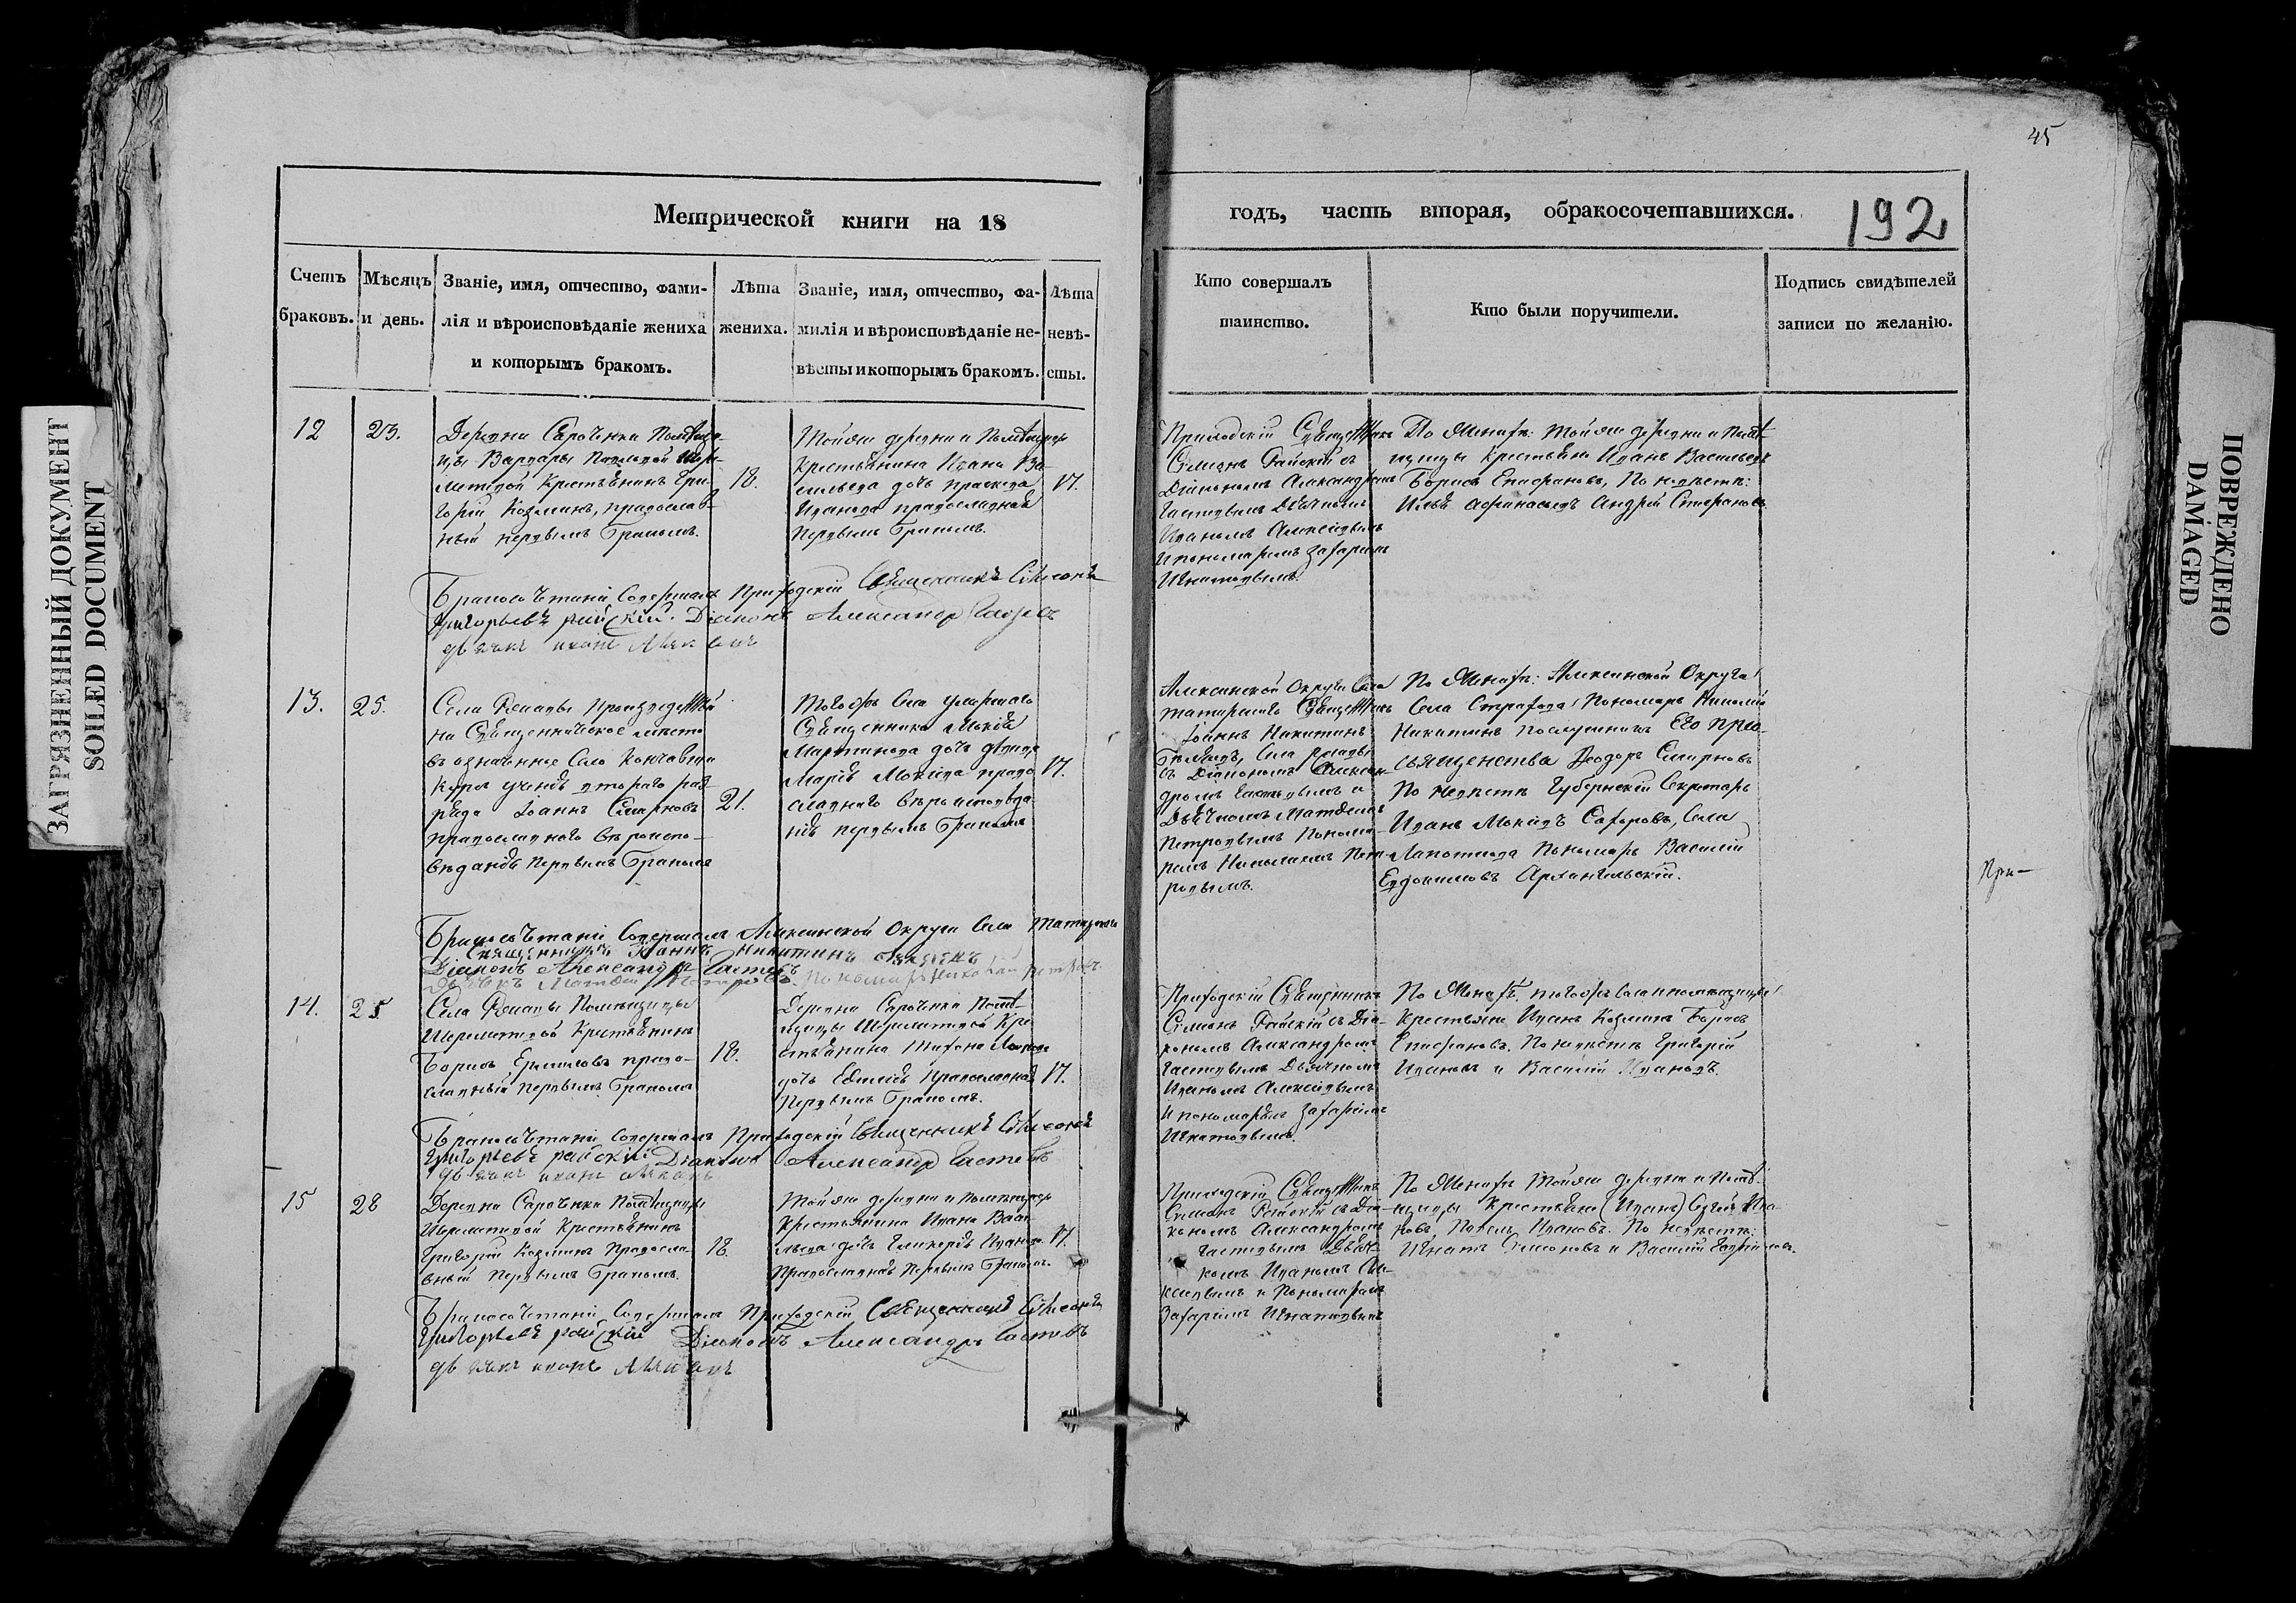 45
Метрической книги на 18
годъ, часть вторая, обракосочетавшихся.
192
Счетъ браковъ.
Мѣсяцъ и день.
Званіе, имя, отчество, фами-
лія и вѣроисповѣданіе жениха
и которымъ бракомъ.
Лѣта
жениха.
Званіе, имя, отчество, фа-
милія и вѣроисповѣданіе не-
вѣсты и которымъ бракомъ.
Лѣта
невѣ-
сты.
Кто совершалъ
таинство.
Кто были поручители.
Подпись свидѣтелей
записи по желанію.
12
23.
Деревни Сароченки Помѣщи-
цы Варвары
Крестьянинъ Гри-
горій Козминъ, православ-
ный первымъ бракомъ.
18.
Тойже деревни и Помѣщицы
Крестьянина Ивана Ва-
сильева дочь
Иванова православная
Первымъ бракомъ.
17.
Приходскій Священникъ
Симеонъ Райскій съ
Діакономъ Александромъ
Дьячкомъ
Иваномъ Алексѣевымъ
и пономаремъ Захаріемъ
Игнатовымъ.
По Женихѣ: тойже деревни и Помѣ-
щицы Крестьяне Иванъ Васильевъ
Борисъ Епифановъ, По невѣстѣ:
Илья Афанасьевъ Андрей Стефановъ.
Бракосочетаніе Совершалъ Приходскій Священникъ Симеонъ
Григорьевъ райскій. Діаконъ Александръ
13.
25.
Села
на Священническое мѣсто
въ означенное Село Кончавшій
Курсъ ученія втораго раз-
ряда Іоаннъ Смирновъ
православнаго вѣроиспо-
вѣданія первымъ бракомъ
21.
Тогожъ Села умершаго
Священника Мокія
Мартинова дочь дѣвица
Марія Мокіева право
славнаго вѣроисповѣда-
нія первымъ бракомъ
17.
Алексинской Округи Села
Священникъ
Іоаннъ Никитинъ
съ Діакономъ Алексан-
дромъ
Дьячкомъ Матвѣемъ
Петровымъ Понома-
ремъ Николаемъ Пет-
ровымъ.
По Женихѣ: Алексинской Округи
Села Страхова Пономарь Николай
Никитинъ Послушникъ Его Прео-
священства Ѳеодоръ Смирновъ
По невѣстѣ Губернскій Секретарь
Иванъ Мокіевъ Сахаровъ, Села
Лапоткова Пономарь Василій
Евдокимовъ Архангельскій.
При-
Бракосочетаніе Совершалъ Алексинской Округи Села
Священникъ Іоаннъ Никитинъ
Діаконъ Александръ
Дьячекъ Матвей Петровъ. Пономарь Николай Петровъ.
14.
25
Села Помѣщицы
Шереметевой Крестьянинъ
Борисъ право-
славный первымъ бракомъ
18.
Деревни Сароченки Помѣ-
щицы Шереметевой Кре-
стьянина
дочь Евдокія Православная
Первымъ бракомъ.
17.
Приходскій Священникъ
Симеонъ Райскій съ Діа-
кономъ Александромъ
Дьячкомъ
Иваномъ Алексѣевымъ
и пономаремъ Захаріемъ
Игнатовымъ.
По Женихѣ: тогожъ Села и помѣщицы
Крестьяне Иванъ Козминъ Борисъ
Епифановъ. По невѣстѣ Григорій
Ивановъ и Василій Ивановъ.
Бракосочетаніе Совершалъ Приходскій Священникъ Симеонъ
Григорьевъ райскій Діаконъ Александръ
15
28
Деревни Сароченки Помѣщицы
Шереметевой Крестьянинъ
Григорій Козминъ Правосла-
вный первымъ бракомъ.
18.
Тойже деревни и помѣщицы
Крестьянина Ивана Васи-
льева дочь Гликерія Иванова
Православная первымъ бракомъ.
17.
Приходскій Священникъ
Симеонъ Райскій съ Діа-
кономъ Александромъ
Дьяч-
комъ Иваномъ Але-
ксѣевымъ и Пономаремъ
Захаріемъ Игнатовымъ
По Женихѣ тойже деревни и Помѣ-
щицы Крестьяне (Иванъ) Сергѣй Ива-
новъ Павелъ Ивановъ. По невѣстѣ:
Игнатъ Симоновъ и Василій
Бракосочетаніе Совершалъ Приходскій Священникъ Симеонъ
Григорьевъ райскій Діаконъ Александръ
ЗАГРЯЗНЕННЫЙ ДОКУМЕНТ
SOILED DOCUMENT
ПОВРЕЖДЕНО
DAMAGED